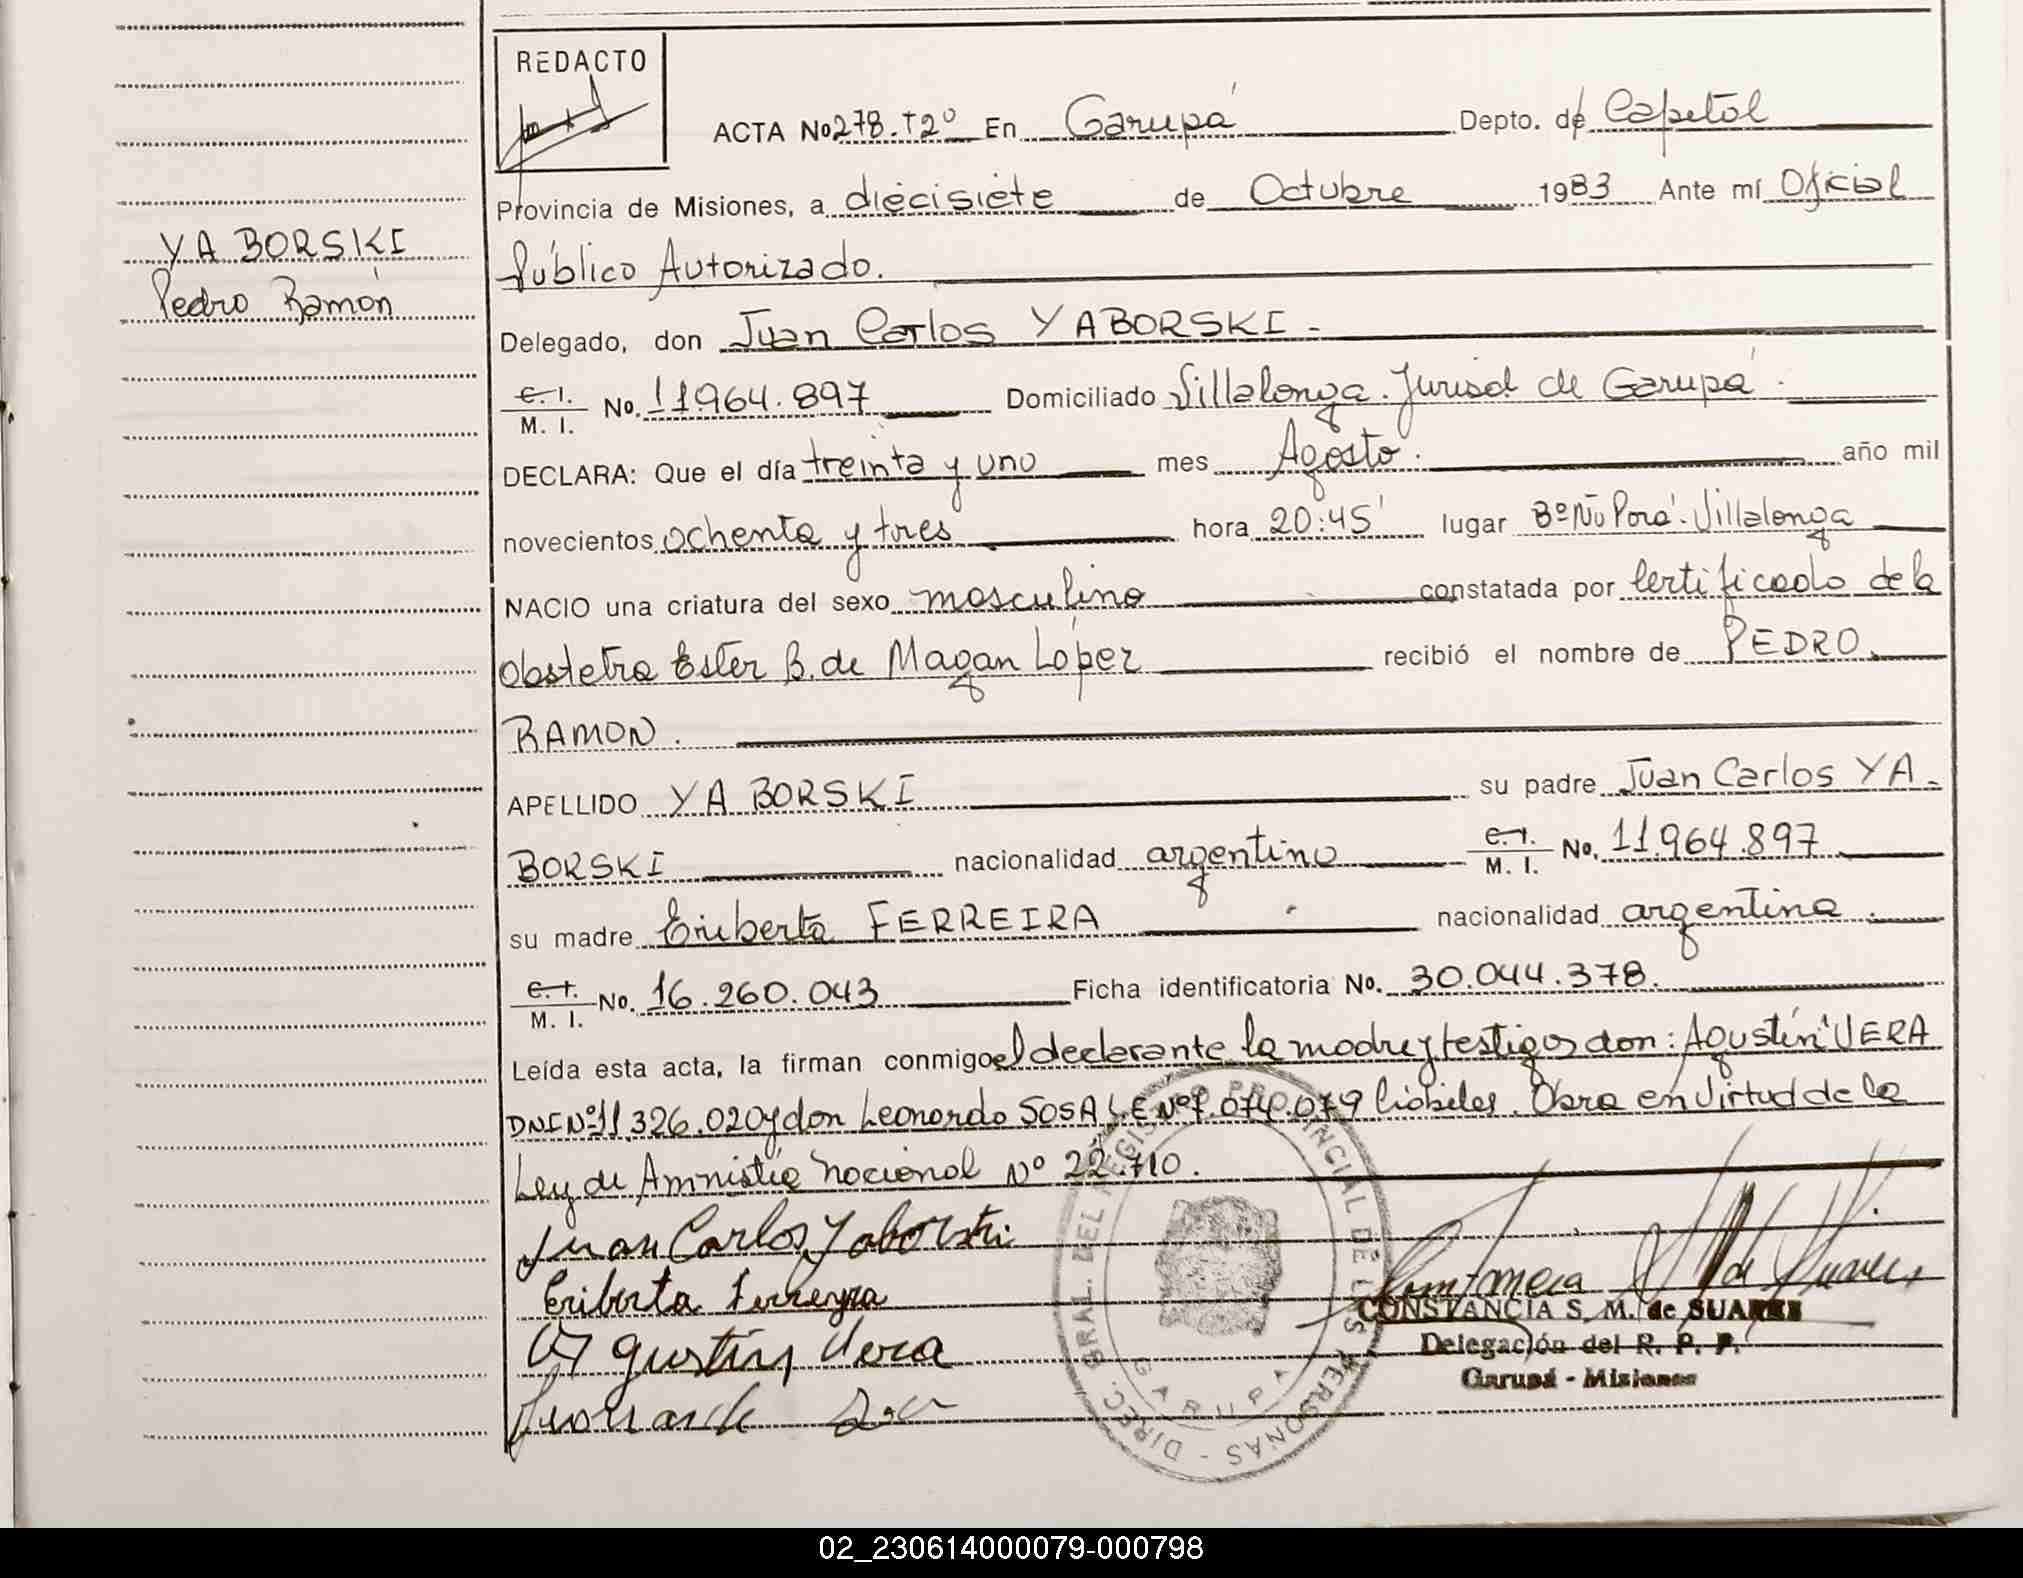 REDACTO
ACTA No 278. T2º En Garupá Depto. de Capital
Provincia de Misiones, a diecisiete de Octubre 1983 Ante mí Oficial
Público Autorizado.
YABORSKI
Pedro Ramón
Delegado, don Juan Carlos YABORSKI.
C. I.
M. I. No. 11964.897 Domiciliado Villalonga. Jurisd. de Garupá.
DECLARA: Que el día treinta y uno mes Agosto. año mil
novecientos ochenta y tres hora 20:45' lugar Bº Ñu Porá. Villalonga
NACIO una criatura del sexo masculino constatada por Certificado de la
Obstetra Ester B. de Magan López recibió el nombre de PEDRO
RAMON.
APELLIDO YABORSKI su padre Juan Carlos YA-
BORSKI nacionalidad argentino C. I.
M. I. No. 11.964.897
su madre Eriberta FERREIRA nacionalidad argentina.
C. I.
M. I. No. 16.260.043 Ficha identificatoria No. 30.044.378.
Leída esta acta, la firman conmigo el declarante la madre y testigos don: Agustín VERA
DNI Nº 11.326.020 y don Leonardo SOSA L.E Nº hábiles. Obra en Virtud de la
Ley de Amnistía Nacional Nº 22.710.
Juan Carlos Yaborski
Eriberta Ferreyra
Agustin Vera
DIREC. GRAL. DEL REGISTRO PROVINCIAL DE LAS PERSONAS -
GARUPA
CONSTANCIA S. M. de SUAREZ
Delegación del R. P. P.
Garupá - Misiones
02_230614000079-000798